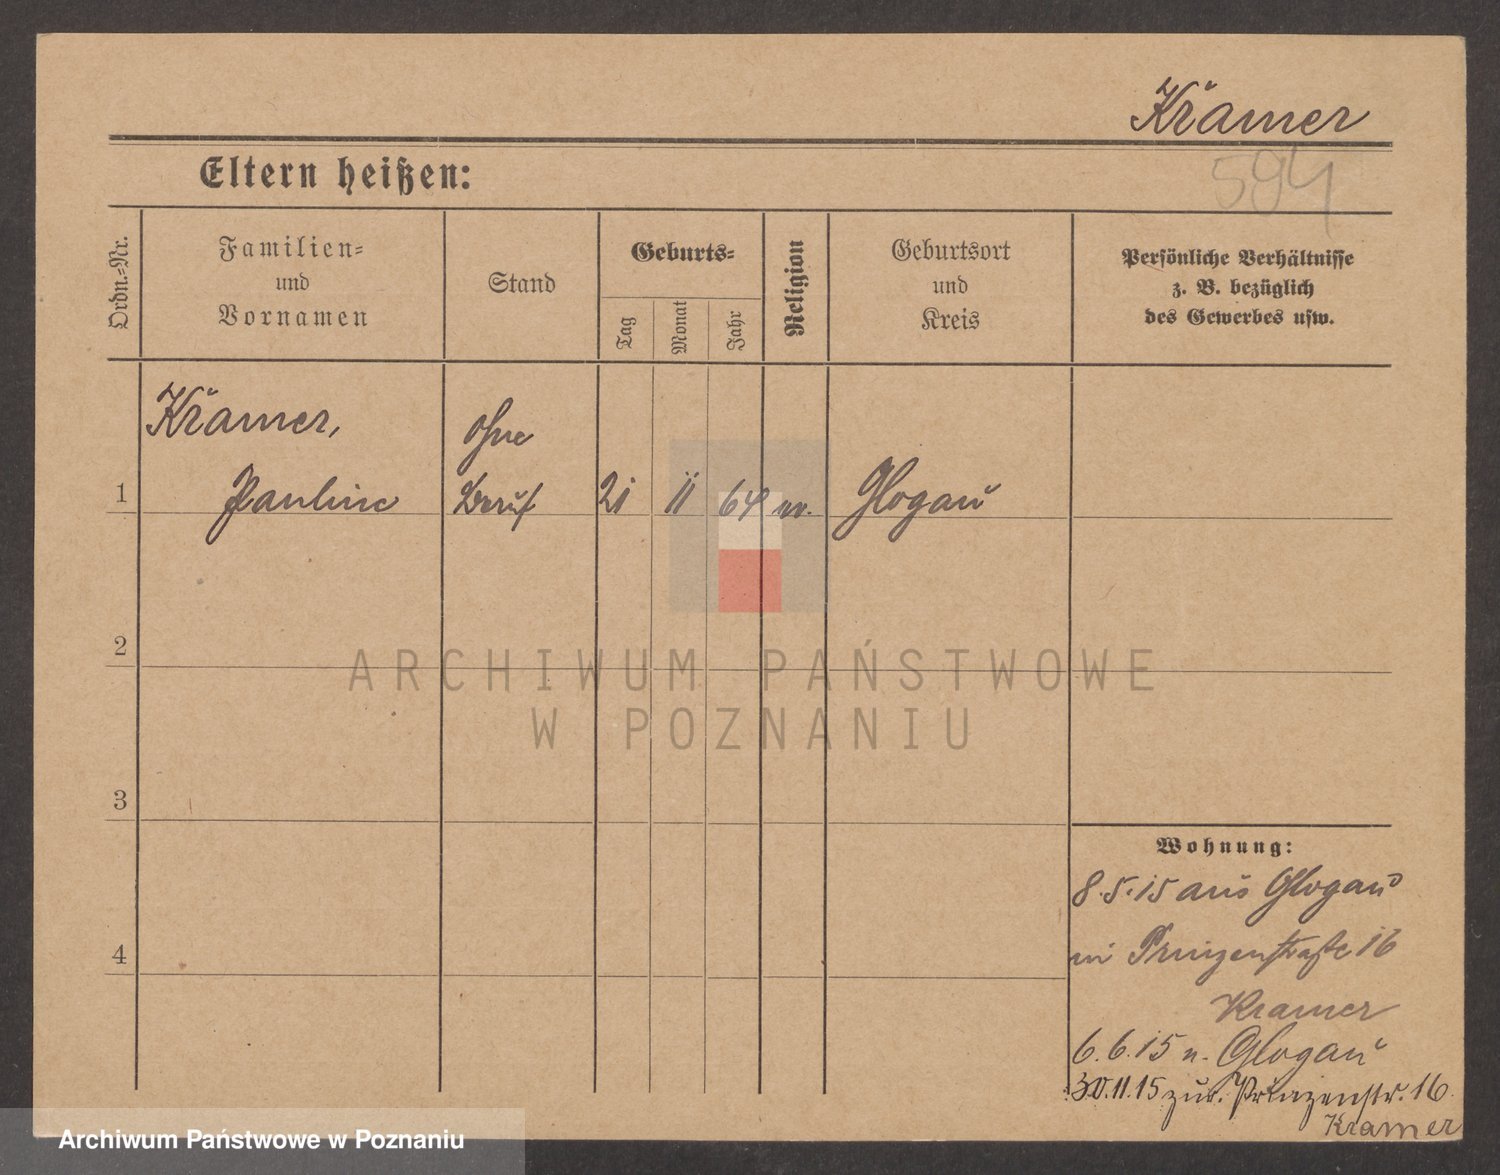 Krämer
594
Eltern heißen:
Ordn.-Nr.
Familien-
und
Vornamen
Stand
Geburts-
Tag
Monat
Jahr
Religion
Geburtsort
und
Kreis
Persönliche Verhältnisse
z. B. bezüglich
des Gewerbes usw.
Krämer,
ohne
1
Pauline
Beruf
21
11
64
Glogau
2
ARCHIWUM PAŃSTWOWE
W POZNANIU
3
Wohnung:
8.5.15 aus Glogau
4
Prinzenstraße 16
Kramer
6.6.15 n. Glogau
30.11.15 zur. Prinzenstr. 16
Kramer
Archiwum Państwowe w Poznaniu